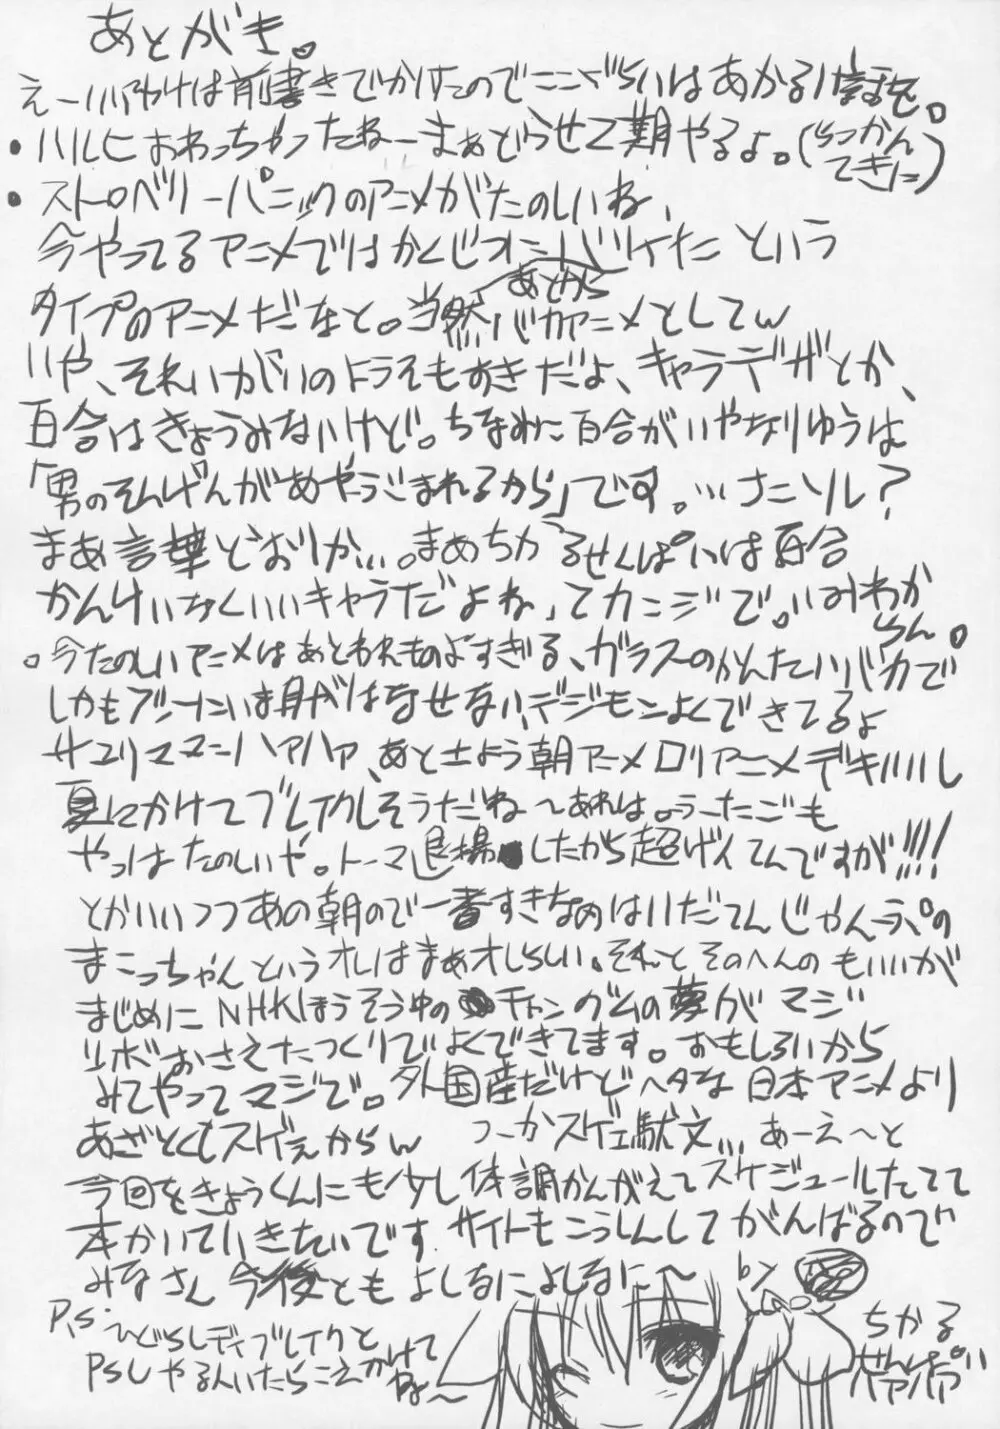 あとがき。
えーいいわけは前書きでかけたのでここぐらいはあかるい話を。
・ハルヒおわっちゃったねーまぁどうせ2期やるよ。(らっかんてきに)
・ストロベリーパニックのアニメがたのしいね、
今やってるアニメではかくじつにバケた という
タイプのアニメだなと。当然あとからバカアニメとしてw
いや、それいがいのトラえもすきだよ、キャラデザとか、
百合はきょうみないけど。ちなみに百合がいやなりゆうは
「男のそんげんがあやうごまれるから」です。…ナニソレ?
まあ言葉どおりか…。まぁちかるせんぱいは百合
かんけいなくいいキャラだよね、てカンジで。いみわからん。
・今たのしいアニメはあとわれものよすぎる、ガラスのかんたいバカで
しかもブソーにいま身がはなせない、デジモンよくできてるよ
サユリママンハァハァ、あと土よう朝アニメロリアニメデキいいし
夏にかけてブレイクしそうだね〜あれは。うーたごも
やっぱたのしいや。トーマ退場したから超げんてんですが!!!!
とかいいつつあの朝ので一番すきなのはいだてんじゃんぷの
まこっちゃんというオレはまぁオレらしい。それっとそのへんのもいいが
まじめにNHKほうそう中のチャングムの夢がマジ
リボおさえたつくりでよくできてます。おもしろいから
みてやってマジで。外国産だけどヘタな日本アニメより
あざとくもスゲぇからw つーかスゲェ駄文… あーえ〜と
今回をきょうくんにも少し体調かんがえてスケジュールたてて
本かいていきたいです サイトもこうしんしてがんばるので
みなさん今後ともよしなによしなに〜
P.S. ひぐらしデイブレイクと
PSUやる人いたらこえかけてね〜
ちかる
せんぱい
ハァハァ